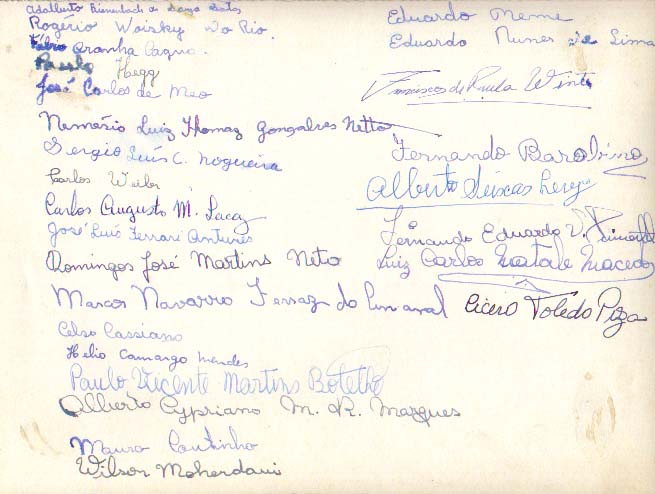 Adalberto Bienenbach de Souza Santos
Rogério Woisky do Rio.
Fábio Aranha
Paulo Hegg
José Carlos de Meo
Nemésio Luiz Thomaz Gonçalves Netto
Sergio Luís C. Nogueira
Carlos Weiler
Carlos Augusto M. Lacaz
José Luís Ferrari Antunes
Domingos José Martins Neto
Marcos Navarro Ferraz do
Celso Cassiano
Helio Camargo Mendes
Paulo Vicente Martins Botelho
Alberto Cypriano M. R. Marques
Mauro Coutinho
Wilson Moherdaui
Eduardo Meme
Eduardo Nunes de Lima
Francisco de Paula
Fernando
Alberto Seixas
Fernando Eduardo
Luiz Carlos Natale Macedo
Cicero Toledo Piza